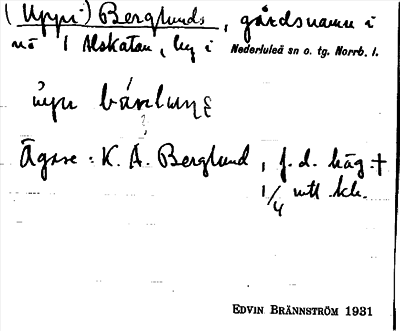 (Uppi-) Berglunds, gårdsnamn i
nö / Alskatan, by i Nederluleå sn o. tg. Norrb. l.
Ägare: K. A. Berglund, f.d. häg. +
1/4 mtl kr.
EDVIN BRÄNNSTRÖM 1931